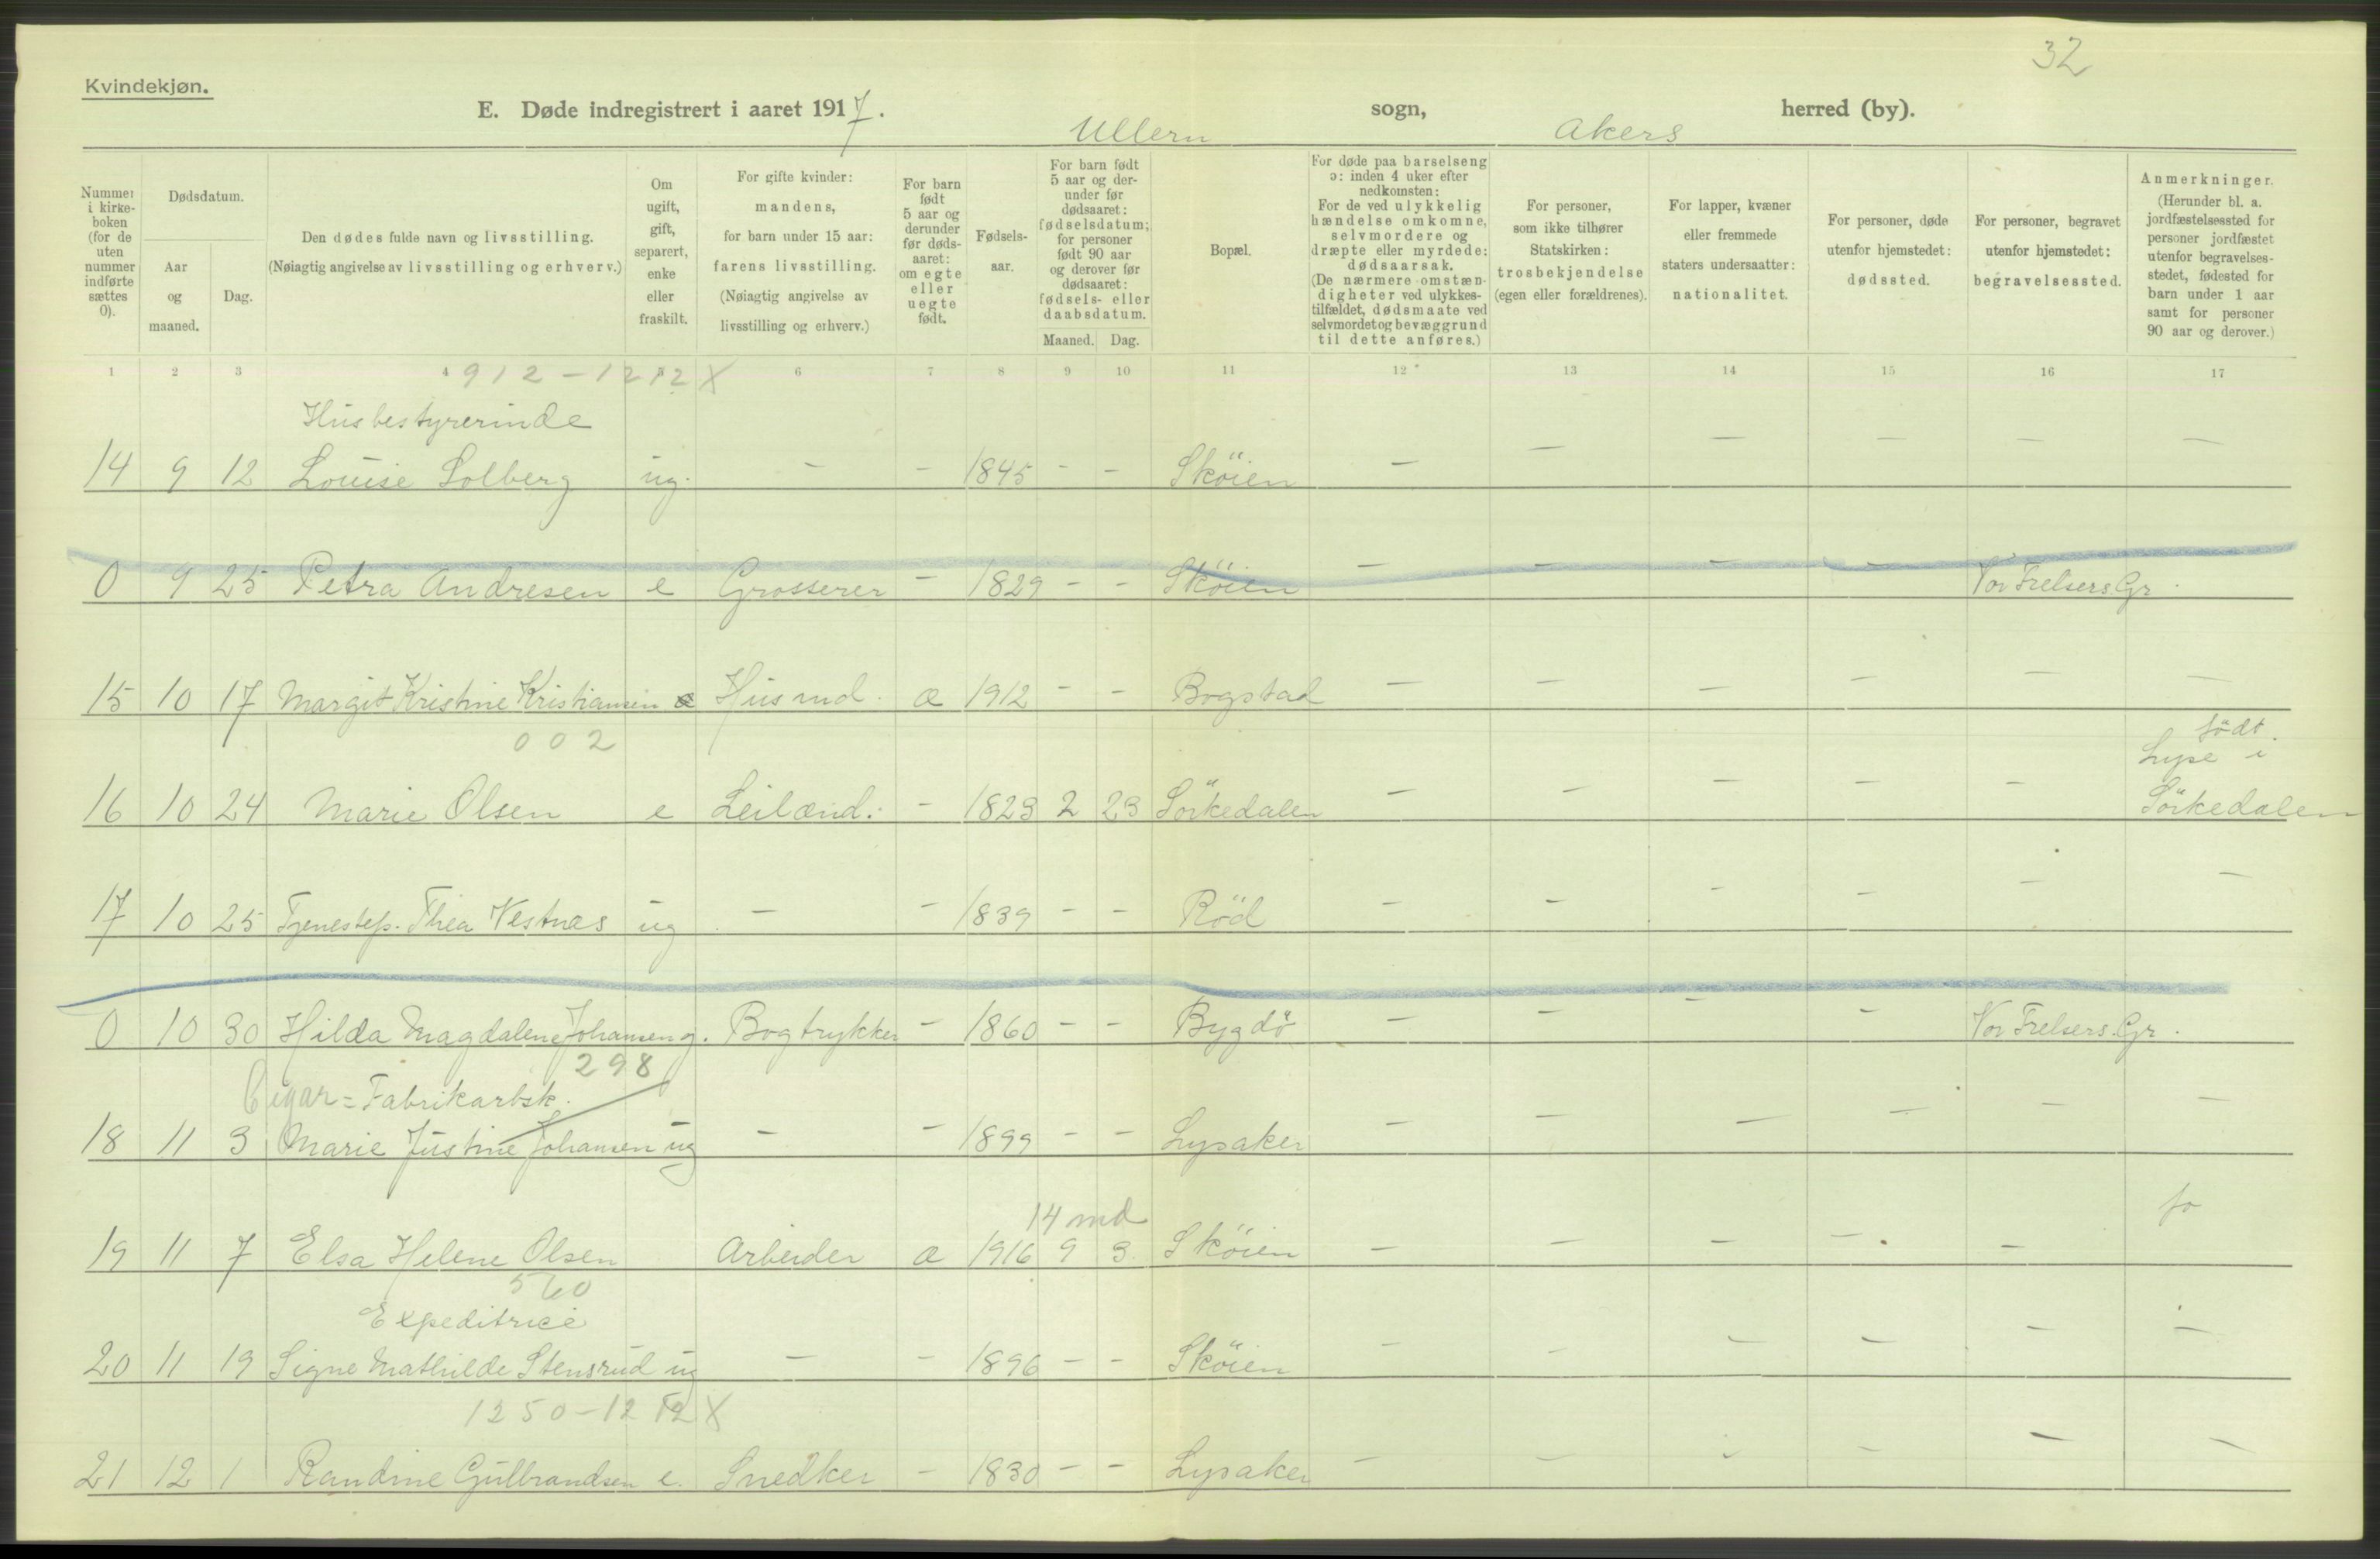 32
Kvindekjøn.
E. Døde indregistrert i aaret 1917. Ullern sogn, Akers herred (by).
Nummer i kirkeboken (for de uten nummer indførte sættes 0).
Dødsdatum.
Aar og maaned.
Dag.
Den dødes fulde navn og livsstilling.
(Nøiagtig angivelse av livsstilling og erhverv.)
Om ugift, gift, separert, enke eller fraskilt.
For gifte kvinder: mandens, for barn under 15 aar: farens livsstilling. (Nøiagtig angivelse av livsstilling og erhverv.)
For barn født 5 aar og derunder før dødsaaret: om egte eller uegte født.
Fødselsaar.
For barn født 5 aar og derunder før dødsaaret: fødselsdatum; for personer født 90 aar og derover før dødsaaret: fødsels- eller daabsdatum.
Maaned. Dag.
Bopæl.
For døde paa barselseng ɔ: inden 4 uker efter nedkomsten: For de ved ulykkelig hændelse omkomne, selvmordere og dræpte eller myrdede: dødsaarsak. (De nærmere omstændigheter ved ulykkestilfældet, dødsmaate ved selvmordet og bevæggrund til dette anføres.)
For personer, som ikke tilhører Statskirken: trosbekjendelse (egen eller forældrenes).
For lapper, kvæner eller fremmede staters undersaatter: nationalitet.
For personer, døde utenfor hjemstedet: dødssted.
For personer, begravet utenfor hjemstedet: begravelsessted.
Anmerkninger. (Herunder bl. a. jordfæstelsessted for personer jordfæstet utenfor begravelsesstedet, fødested for barn under 1 aar samt for personer 90 aar og derover.)
1 2 3 4 6 7 8 9 10 11 12 13 14 15 16 17
912-1212 X
Husbestyrerinde
14 9 12 Louise Solberg ug. - - 1845 - - Sköien - - - - - -
0 9 25 Petra Andresen e Grosserer - 1829 - - Sköien - - - - Vor Frelsers Gr.
15 10 17 Margit Kristine Kristiansen Husmd. æ 1912 - - Bogstad - - - - - -
002
født
Lype i
16 10 24 Marie Olsen e Leilænd: - 1823 2 23 Sörkedalen - - - - - Sörkedalen
17 10 25 Tjenestep. Thea Vestnæs ug - - 1839 - - Röd - - - - - -
0 10 30 Hilda Magdalene Johansen g. Bogtrykker - 1860 - - Bygdö - - - - Vor Frelsers Gr.
298
Cigar=Fabrikarbsk.
18 11 3 Marie Justine Johansen ug - - 1899 - - Lysaker - - - - - -
14 md
19 11 7 Elsa Helene Olsen Arbeider æ 1916 9 3. Sköien - - - - -
560
Expeditrice
20 11 19 Signe Mathilde Stensrud ug - - 1896 - - Sköien - - - - - -
1250-1212 X
21 12 1 Randine Gulbrandsen e. Snedker - 1830 - - Lysaker - - - - - -